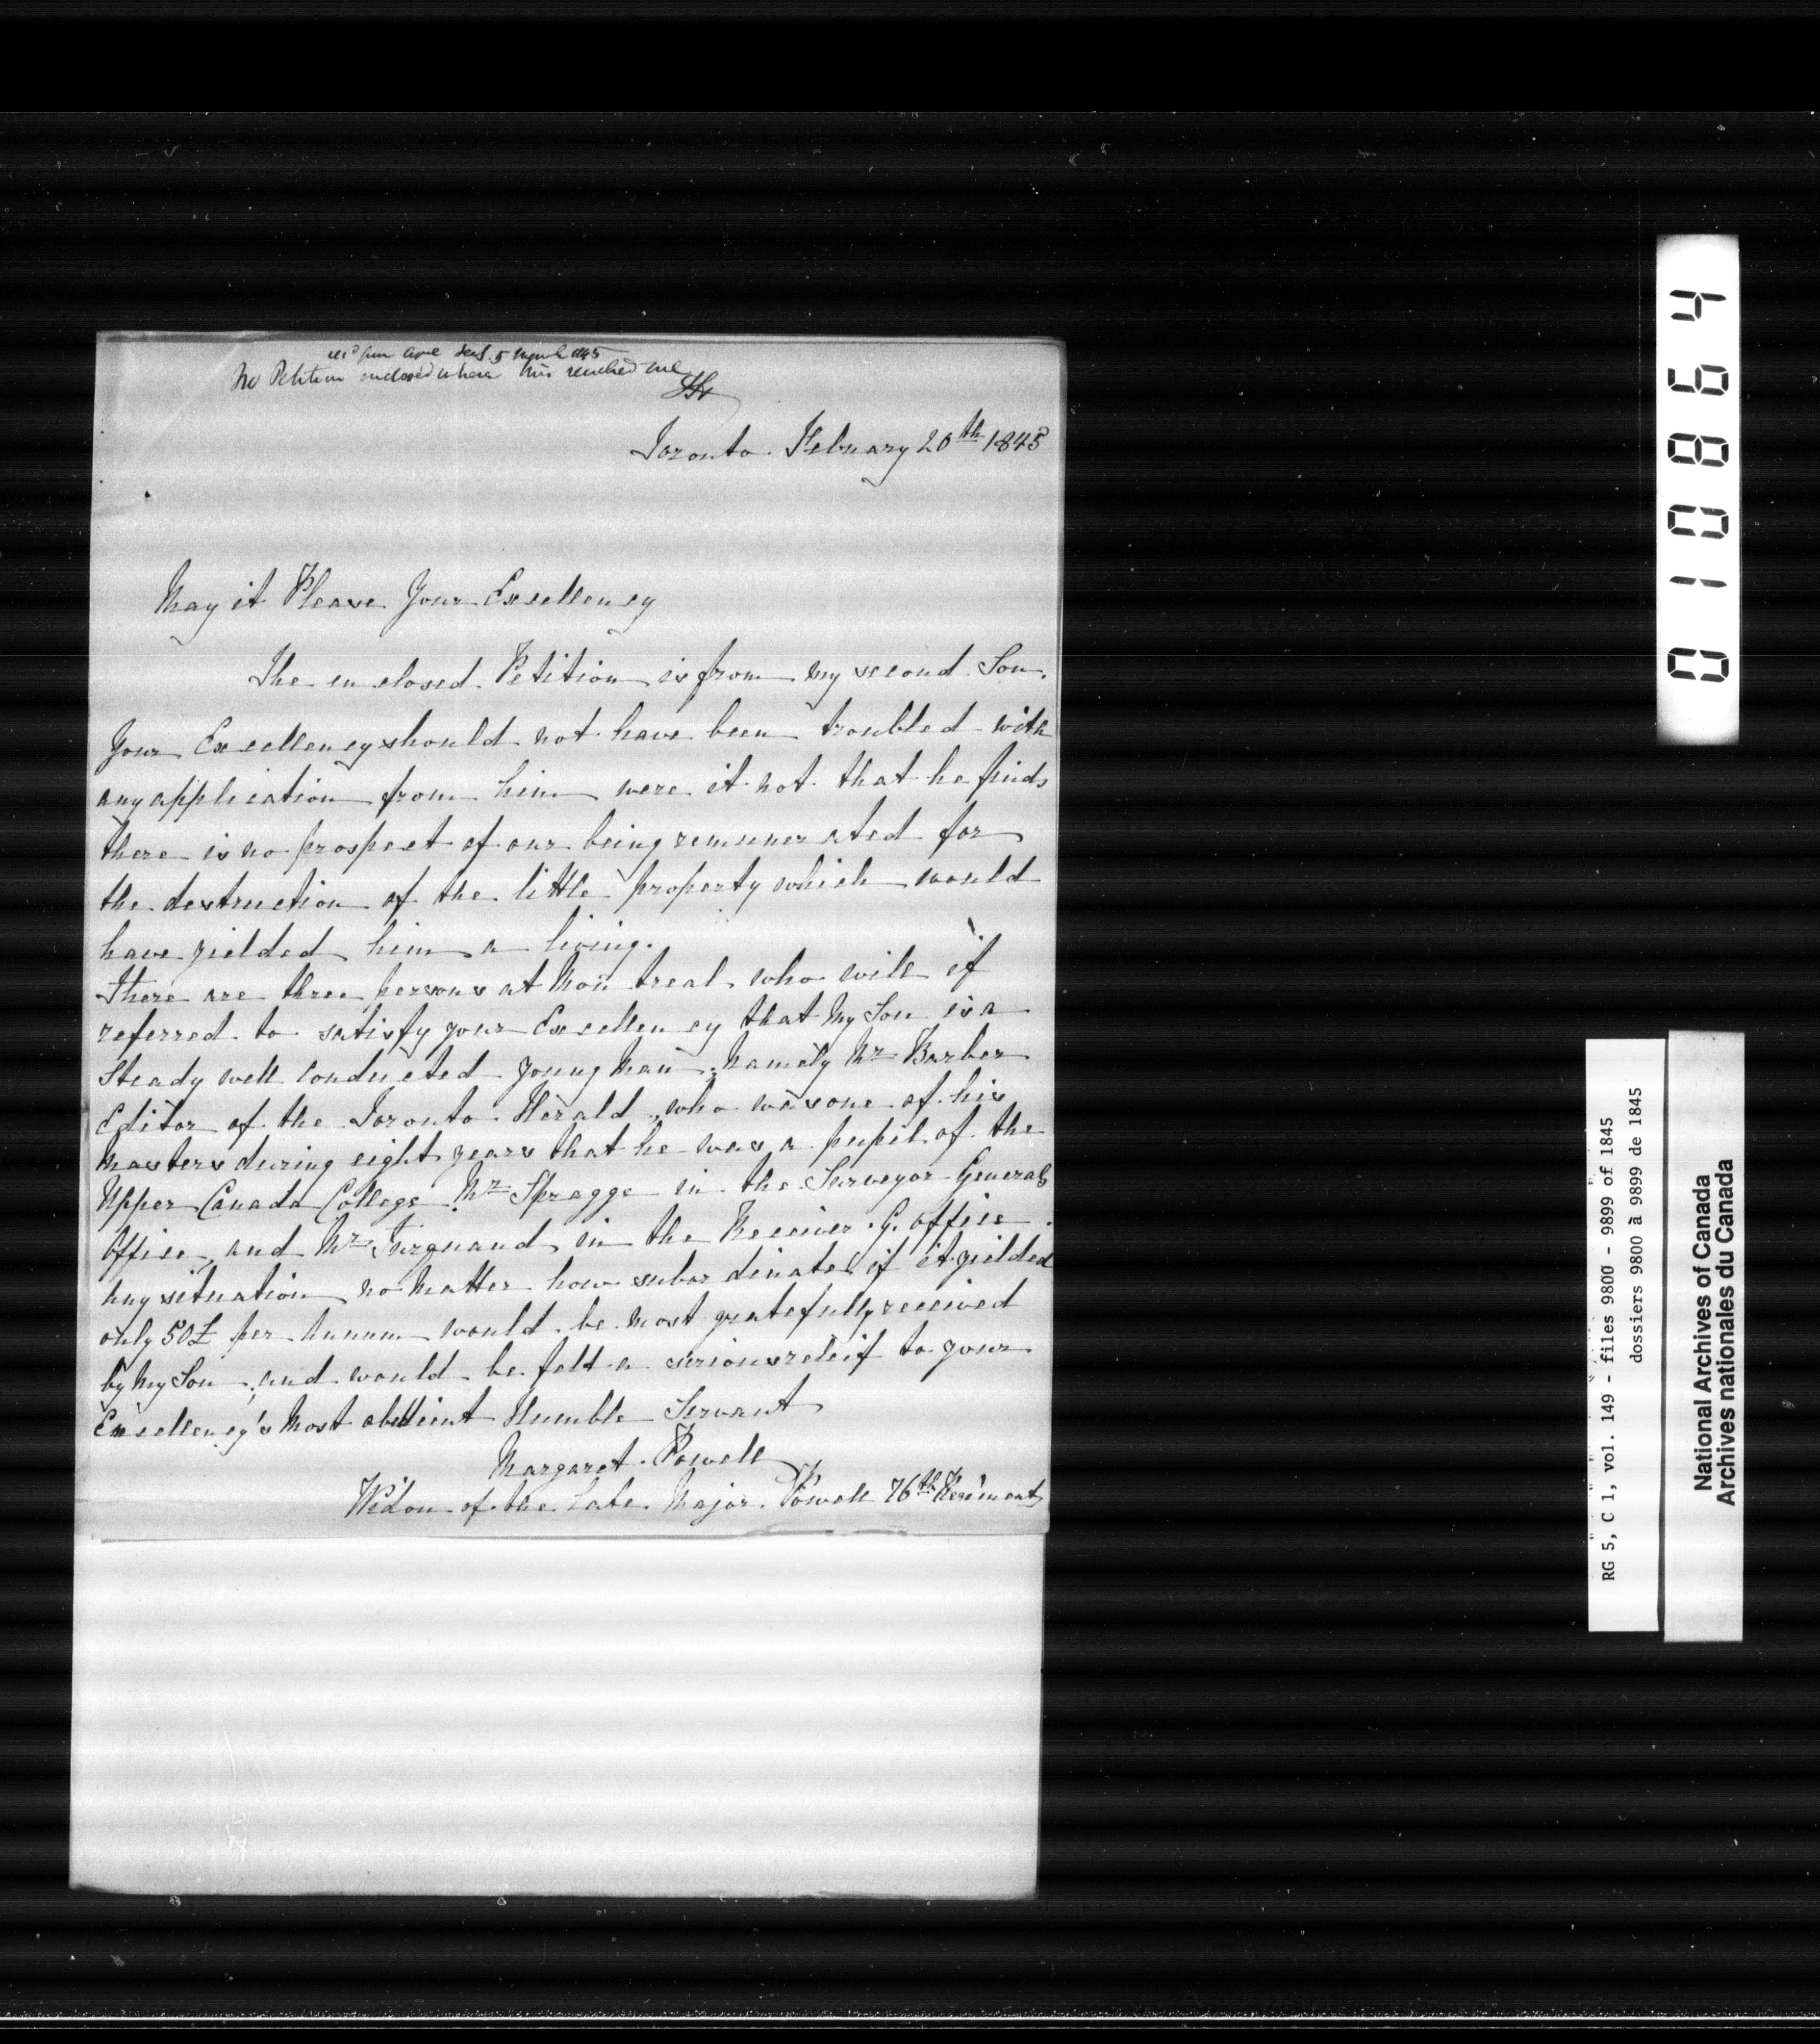 rec'd from Gov.r Sec.y 5 March 1845
No Petition enclosed when this reached me
Toronto February 20th 1845
May it Please Your Excellency
The enclosed Petition is from my second Son.
Your Excellency should not have been troubled with
any application from him were it not that he finds
there is no prospect of our being remunerated for
the destruction of the little property which would
have yielded him a living.
There are three persons at Montreal who will if
referred to satisfy your Excellency that My Son is a
Steady well conducted young Man, Namely Mr Barber
Editor of the Toronto Herald, who was one of his
Masters during eight years that he was a pupil of the
Upper Canada College. Mr Spragge in the Surveyor Generals
Office, and Mr Turquand in the Receiver. G. office.
Any situation no Matter how subordinate if it yielded
only 50£ per Annum would be most gratefully received
by My Son, and would be felt a serious releif to your
Excellency's Most obedient Humble Servant
Margaret Powell
Widow of the Late Major Powell 76th Regiment
010864
RG 5, C 1, vol. 149 - files 9800 - 9899 of 1845
dossiers 9800 à 9899 de 1845
National Archives of Canada
Archives nationales du Canada